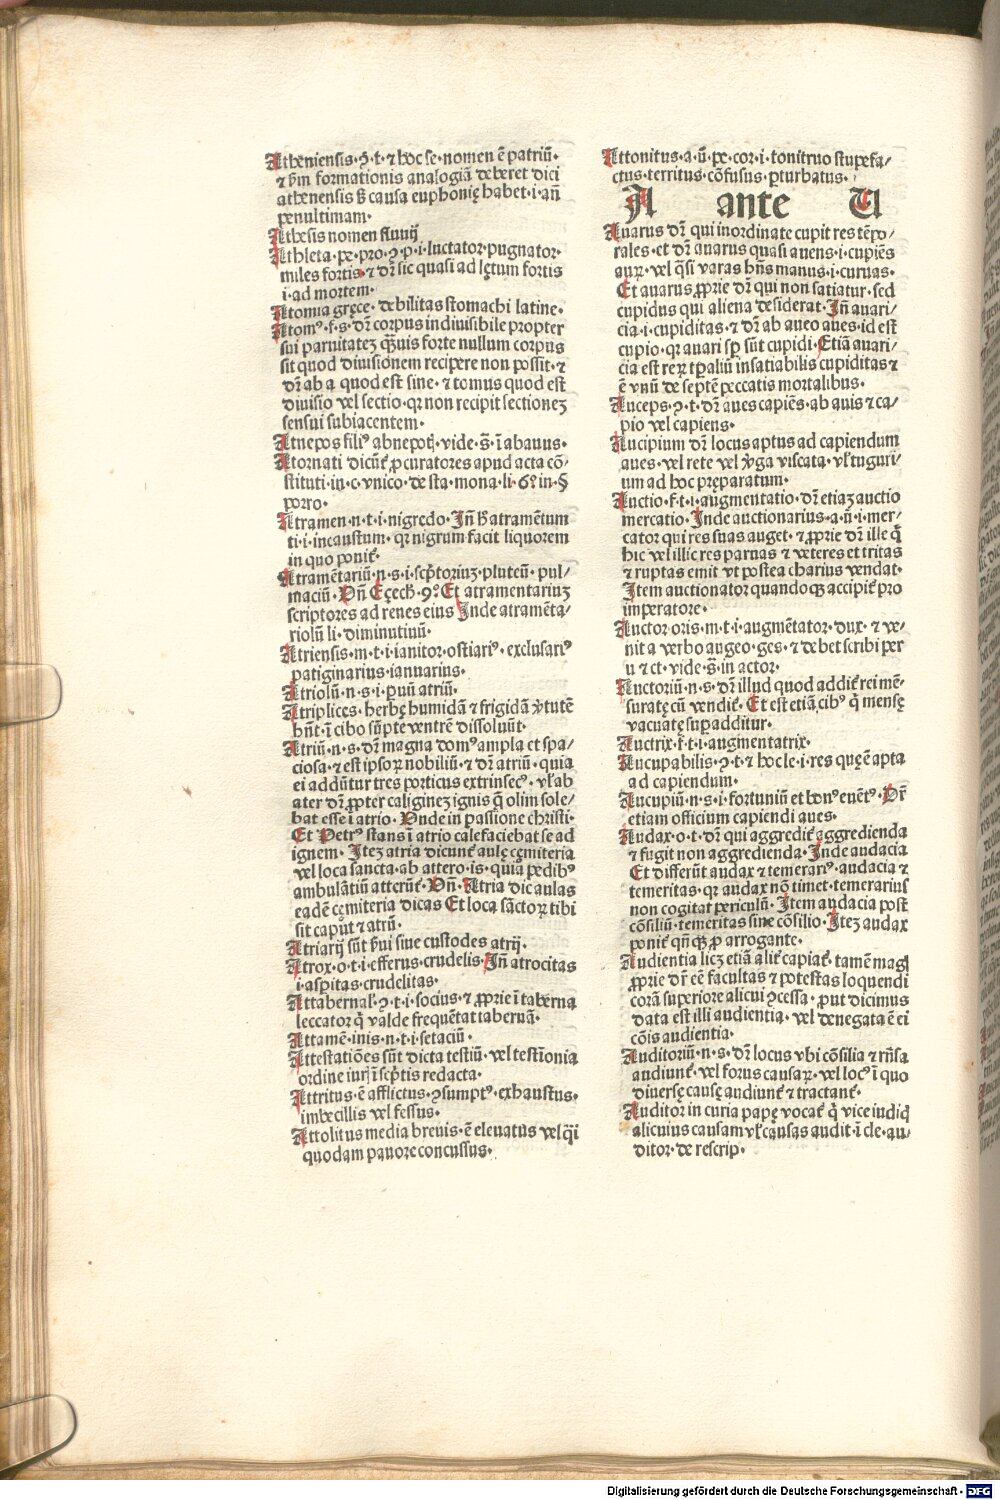 Atheniensis·ꝯ·t·⁊ hoc se·nomen ē patriū·
⁊ ẜm formationis analogiā deberet dici
athenensis ẜ causa euphonię habet·i·añ
penultimam·
Athesis nomen fluuij
Athleta·pe·pro·ꝯ·p·i·luctator·pugnator·
miles fortis·⁊ dr̄ sic quasi ad lętum fortis
i·ad mortem·
Atomia gręce·debilitas stomachi latine·
Atomꝰ·f·s·dr̄ corpus indiuisibile propter
sui paruitatez q̄uis forte nullum corpus
sit quod diuisionem recipere non possit·⁊
dr̄ ab a quod est sine·⁊ tomus quod est
diuisio vel sectio·qr non recipit sectionez
sensui subiacentem·
Atnepos filiꝰ abnepotꝭ·vide·s̄·ī abauus·
Atornati dicūt᷑ ꝓcuratores apud acta cō-
stituti·in·c·vnico·de sta·mona·li·6°·in·§
porro·
Atramen·n·t·i·nigredo·Jn̄ h̄ atramētum
ti·i·incaustum·qr nigrum facit liquorem
in quo ponit᷑·
Atramētariū·n·s·i·scp̄toriuz·pluteū·pul/
maciū·Vn̄ Eçech·9°·Et atramentariuz
scriptores ad renes eius Jnde atramēta/
riolū li·diminutiuū·
Atriensis·m·t·i·ianitor·ostiariꝰ·exclusariꝰ
patiginarius·ianuarius·
Atriolū·n·s·i·puū atriū·
Atriplices·herbę humidā ⁊ frigidā v̄tutē
hn̄t·ī cibo sūpte ventrē dissoluūt·
Atriū·n·s·dr̄ magna domꝰ ampla et spa/
ciosa·⁊ est ipsoꝝ nobiliū·⁊ dr̄ atriū·quia
ei addūtur tres porticus extrinsecꝰ·vl̓ ab
ater dr̄ ꝓpter caliginez ignis q̄ olim sole/
bat esse ī atrio·Vnde in passione christi·
Et Petrꝰ stans ī atrio calefaciebat se ad
ignem·Jtez atria dicunt᷑ aulę cęmiteria
vel loca sancta·ab attero·is·quia pedibꝰ
ambulātiū atterūt᷑·Vn̄·Atria dic aulas
eadē cęmiteria dicas Et loca sāctoꝝ tibi
sit caput ⁊ atrū·
Atriarij sūt ẜui siue custodes atrij·
Atrox·o·t·i·efferus·crudelis·Jn̄ atrocitas
i·asp̄itas·crudelitas·
Attabernal̓·ꝯ·t·i·socius·⁊ ꝓprie ī taberna
leccator q̄ valde frequētat tabernā·
Attamē·inis·n·t·i·setaciū·
Attestatiões sūt dicta testiū·vel testīonia
ordine iurꝭ ī scp̄tis redacta·
Attritus·ē afflictus·ꝯsumptꝰ·exhaustus·
imbecillis vel fessus·
Attolitus media breuis·ē eleuatus vel q̄i
quodam pauore concussus·
Attonitus·a·ū·pe·cor·i·tonitruo stupefa/
ctus·territus·cōfusus·ꝑturbatus·
A ante U
Auarus dr̄ qui inordinate cupit res tēpo/
rales·et dr̄ auarus quasi auens·i·cupiēs
auꝝ·vel q̄si varas hn̄s manus·i·curuas·
Et auarus ꝓprie dr̄ qui non satiatur·sed
cupidus qui aliena desiderat·Jn̄ auari/
cia·i·cupiditas·⁊ dr̄ ab aueo aues·id est
cupio·qr auari sꝑ sūt cupidi·Etiā auari/
cia est reꝝ tꝑaliū insatiabilis cupiditas ⁊
ē vnū de septē peccatis mortalibus·
Auceps·ꝯ·t·dr̄ aues capiēs·ab auis ⁊ ca/
pio vel capiens·
Aucipium dr̄ locus aptus ad capiendum
aues·vel rete vel v̓ga viscata·vl̓ tuguri/
um ad hoc preparatum·
Auctio·f·t·i·augmentatio·dr̄ etiaz auctio
mercatio·Jnde auctionarius·a·ū·i·mer/
cator qui res suas auget·⁊ ꝓprie dr̄ ille q̄
hic vel illic res paruas ⁊ veteres et tritas
⁊ ruptas emit vt postea charius vendat·
Jtem auctionator quandoqꝫ accipit᷑ pro
imperatore·
Auctor oris·m·t·i·augmētator·dux·⁊ ve/
nit a verbo augeo·ges·⁊ debet scribi per
u ⁊ ct·vide·s̄·in actor·
Auctoriū·n·s·dr̄ illud quod addit᷑ rei mē/
suratę cū vendit᷑·Et est etiā cibꝰ q̄ mensę
vacuatę suꝑadditur·
Auctrix·f·t·i·augmentatrix·
Aucupabilis·ꝯ·t·⁊ hoc le·i·res quę ē apta
ad capiendum·
Aucupiū·n·s·i·fortuniū et bonꝰ euētꝰ·Dr̄
etiam officium capiendi aues·
Audax·o·t·dr̄ qui aggredit᷑ aggredienda
⁊ fugit non aggredienda·Jnde audacia
Et differūt audax ⁊ temerariꝰ·audacia ⁊
temeritas·qr audax nō timet·temerarius
non cogitat periculū·Jtem audacia post
cōsiliū·temeritas sine cōsilio·Jtez audax
ponit᷑ qn̄qꝫ ꝓ arrogante·
Audientia licz etiā alit᷑ capiat᷑·tamē magꝭ
ꝓprie dr̄ eē facultas ⁊ potestas loquendi
corā superiore alicui ꝯcessa·ꝓut dicimus
data est illi audientia·vel denegata ē ei
cōis audientia·
Auditoriū·n·s·dr̄ locus vbi cōsilia ⁊ rn̄sa
audiunt᷑·vel forus causaꝝ·vel locꝰ ī quo
diuersę causę audiunt᷑ ⁊ tractant᷑·
Auditor in curia papę vocat᷑ q̄ vice iudicꝭ
alicuius causam vl̓ causas audit·ī cle·au/
ditor·de rescrip·
Digitalisierung gefördert durch die Deutsche Forschungsgemeinschaft - DFG